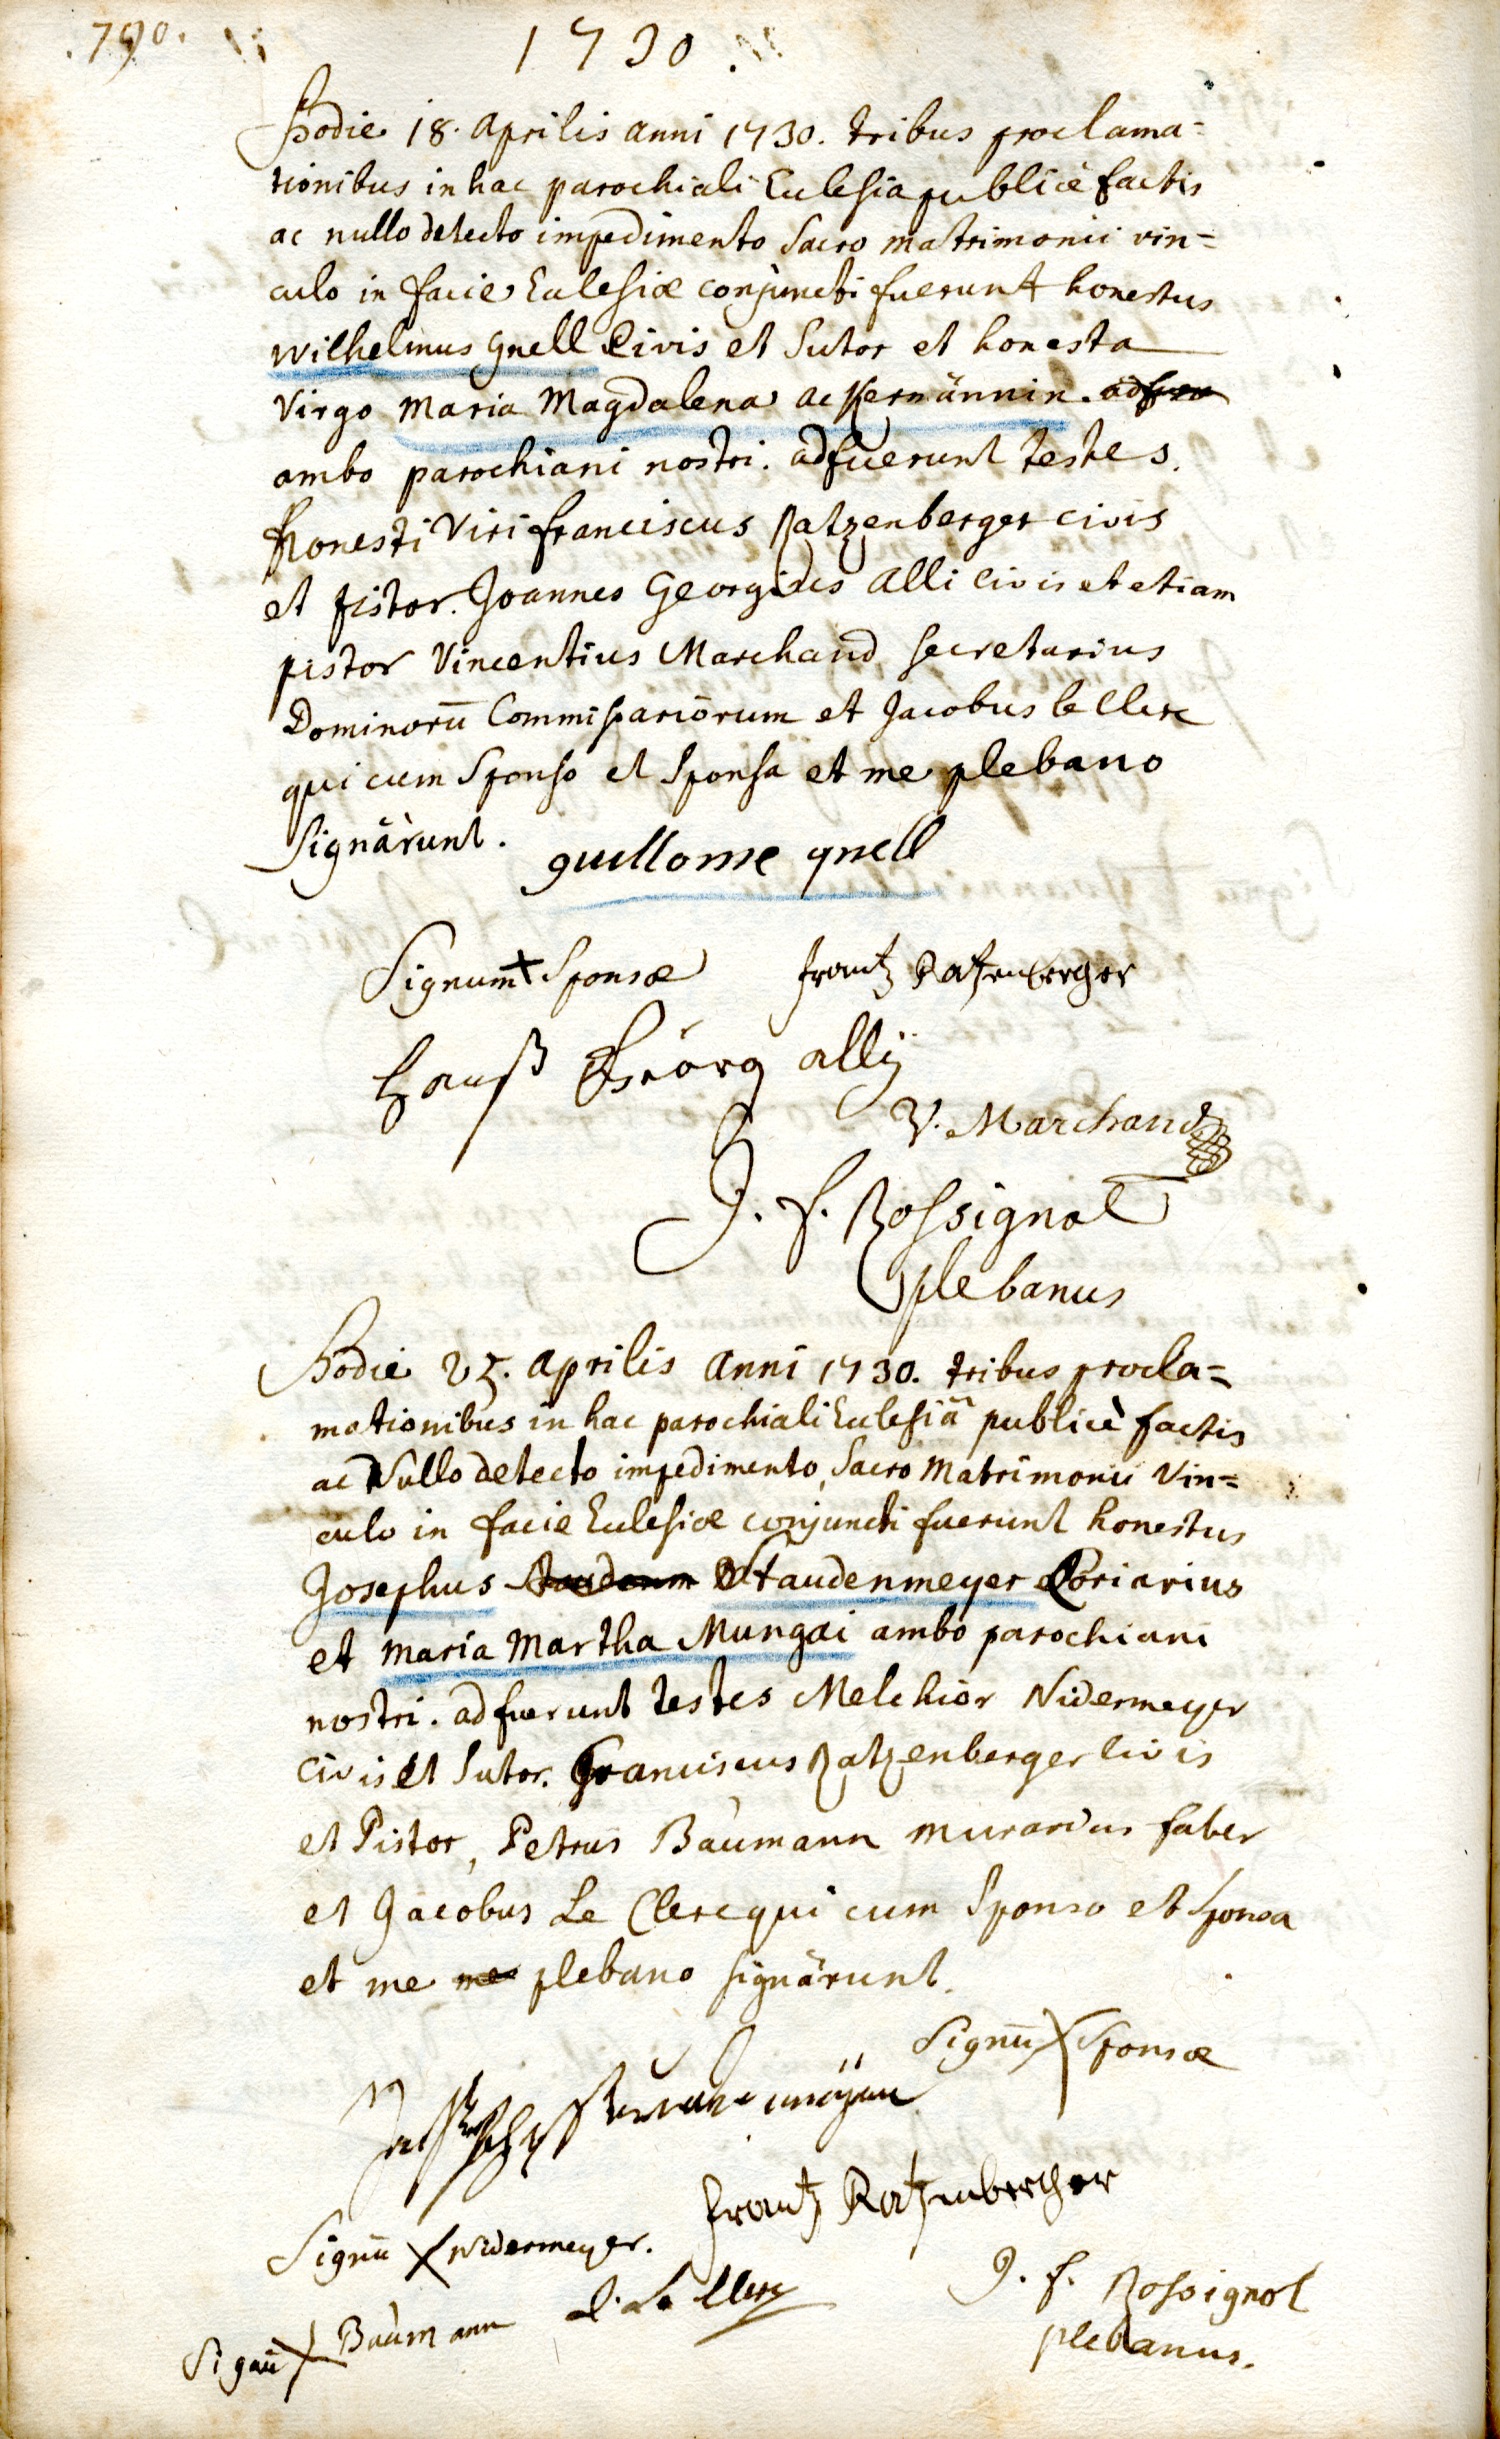 .790.
1730.
Hodie 18. aprilis anni 1730. tribus proclama=
tionibus in hac parochiali Ecclesia publicè factis
ac nullo detecto impedimento Sacro matrimonii vin=
culo in facie Ecclesiæ conjuncti fuerunt honestus
wilhelmus gnell Civis et Sutor et honesta
Virgo maria Magdalena ackermännin. adfue
ambo parochiani nostri. adfuerunt testes.
honesti Viri franciscus Ratzenberger civis
et pistor. Joannes Georgius alli civis et etiam
pistor Vincentius Marchand secretarius
Dominorū Commissariorum et Jacobus le Clerc
qui cum Sponso et Sponsa et me plebano
Signârunt. guillome gnell
Signum + Sponsæ frantz Ratzenbercher
Hanß Geörg allij
V. Marchand
J. f. Rossignol
plebanus
Hodie 25. aprilis anni 1730. tribus procla=
mationibus in hac parochiali Ecclesiâ publicè factis
ac Nullo detecto impedimento, Sacro Matrimonii Vin=
culo in facie Ecclesiæ conjuncti fuerunt honestus
Josephus Staudenmeyer Coriarius
et maria Martha Mungai ambo parochiani
nostri. adfuerunt testes Melchior Nidermeyer
Civis et Sutor. franciscus Ratzenberger civis
et Pistor, Petrus Baumann murarius faber
et Jacobus Le Clerc qui cum Sponso et Sponsa
et me me plebano signârunt.
Signū X Sponsæ
frantz Ratzenbercher
Signū X Nidermeyer.
J. Le Clerc
J. f. Rossignol
plebanus.
Signū X Baumann